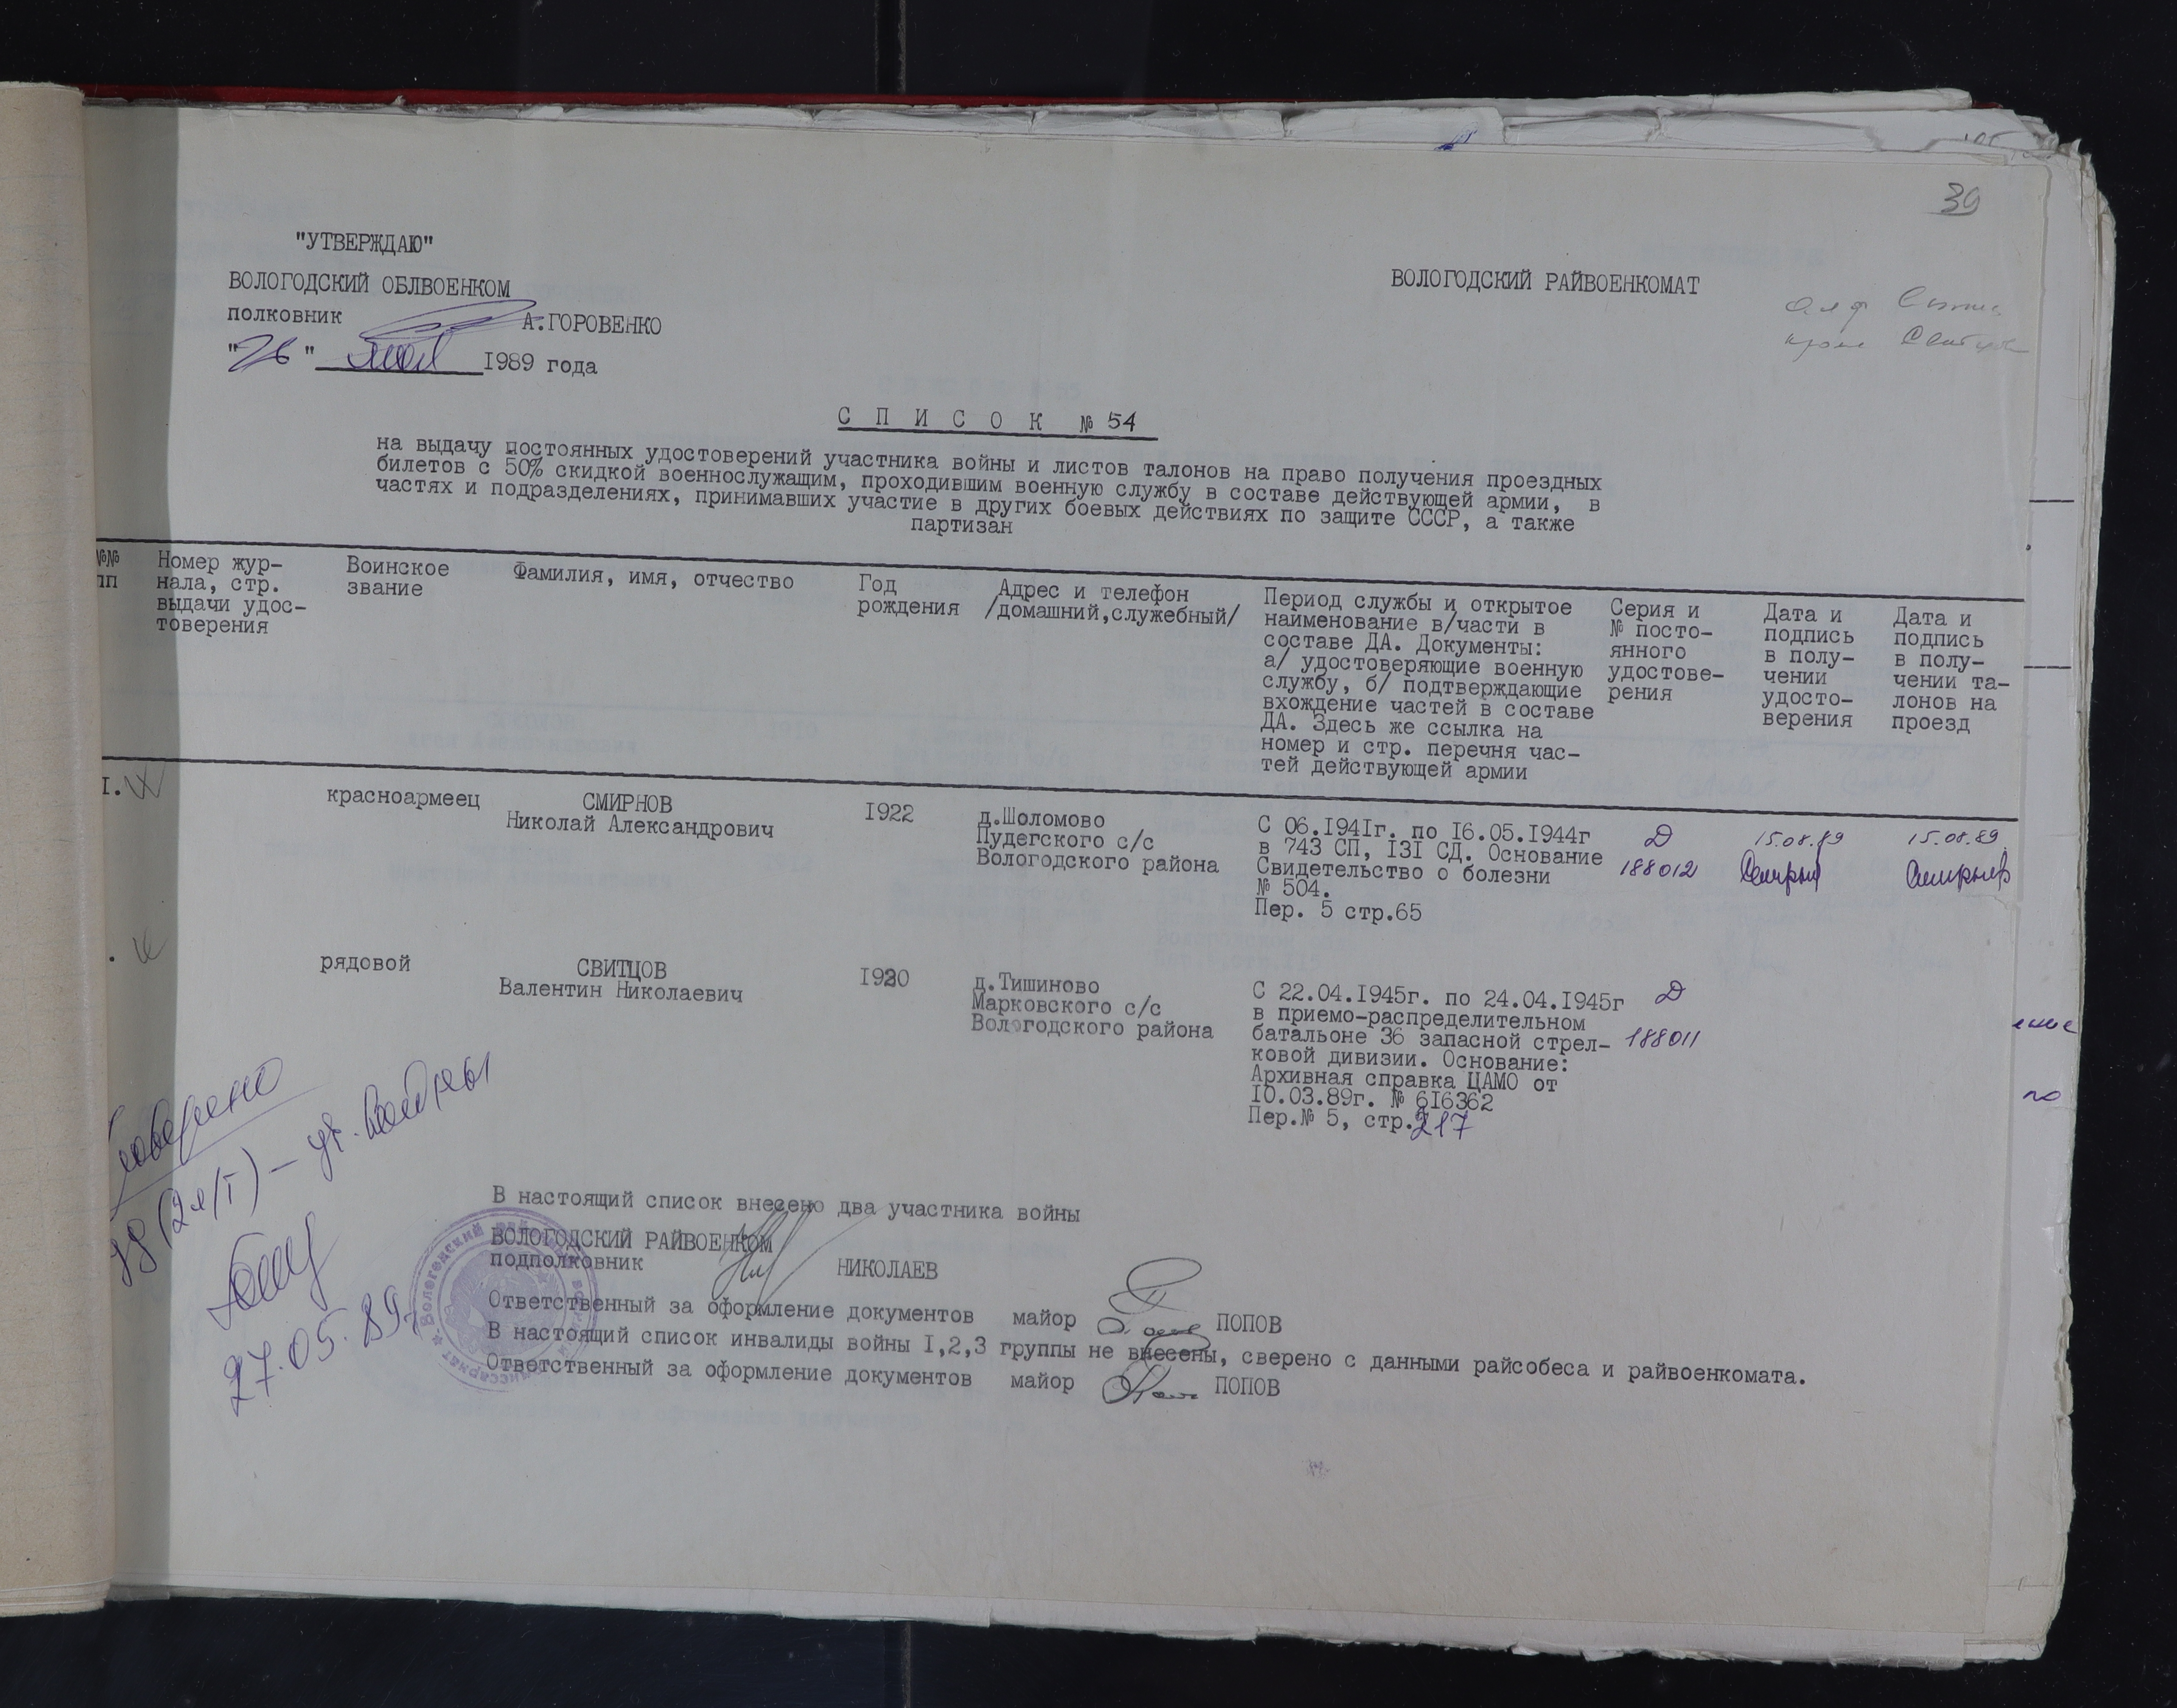 39
"УТВЕРЖДАЮ"
ВОЛОГОДСКИЙ ОБЛВОЕНКОМ
полковник А.ГОРОВЕНКО
"26" мая 1989 года
ВОЛОГОДСКИЙ РАЙВОЕНКОМАТ
С П И С О К № 54
на выдачу постоянных удостоверений участника войны и листов талонов на право получения проездных
билетов с 50% скидкой военнослужащим, проходившим военную службу в составе действующей армии, в
частях и подразделениях, принимавших участие в других боевых действиях по защите СССР, а также
партизан
№№
пп
Номер жур-
нала, стр.
выдачи удос-
товерения
Воинское
звание
Фамилия, имя, отчество
Год
рождения
Адрес и телефон
/домашний,служебный/
Период службы и открытое
наименование в/части в
составе ДА. Документы:
а/ удостоверяющие военную
службу, б/ подтверждающие
вхождение частей в составе
ДА. Здесь же ссылка на
номер и стр. перечня час-
тей действующей армии
Серия и
№ посто-
янного
удостове-
рения
Дата и
подпись
в полу-
чении
удосто-
верения
Дата и
подпись
в полу-
чении та-
лонов на
проезд
I.
красноармеец
СМИРНОВ
Николай Александрович
I922
д.Шоломово
Пудегского с/с
Вологодского района
С 06.I94Iг. по I6.05.I944г
в 743 СП, I3I СД. Основание
Свидетельство о болезни
№ 504.
Пер. 5 стр.65
Д
188012
15.08.89
15.08.89
рядовой
СВИТЦОВ
Валентин Николаевич
I920
д.Тишиново
Марковского с/с
Вологодского района
С 22.04.I945г. по 24.04.I945г
в приемо-распределительном
батальоне 36 запасной стрел-
ковой дивизии. Основание:
Архивная справка ЦАМО от
I0.03.89г. № 6I6362
Пер.№ 5, стр.217
Д
188011
27.05.89г
В настоящий список внесено два участника войны
ВОЛОГОДСКИЙ РАЙВОЕНКОМ
подполковник НИКОЛАЕВ
Ответственный за оформление документов майор ПОПОВ
В настоящий список инвалиды войны I,2,3 группы не внесены, сверено с данными райсобеса и райвоенкомата.
Ответственный за оформление документов майор ПОПОВ